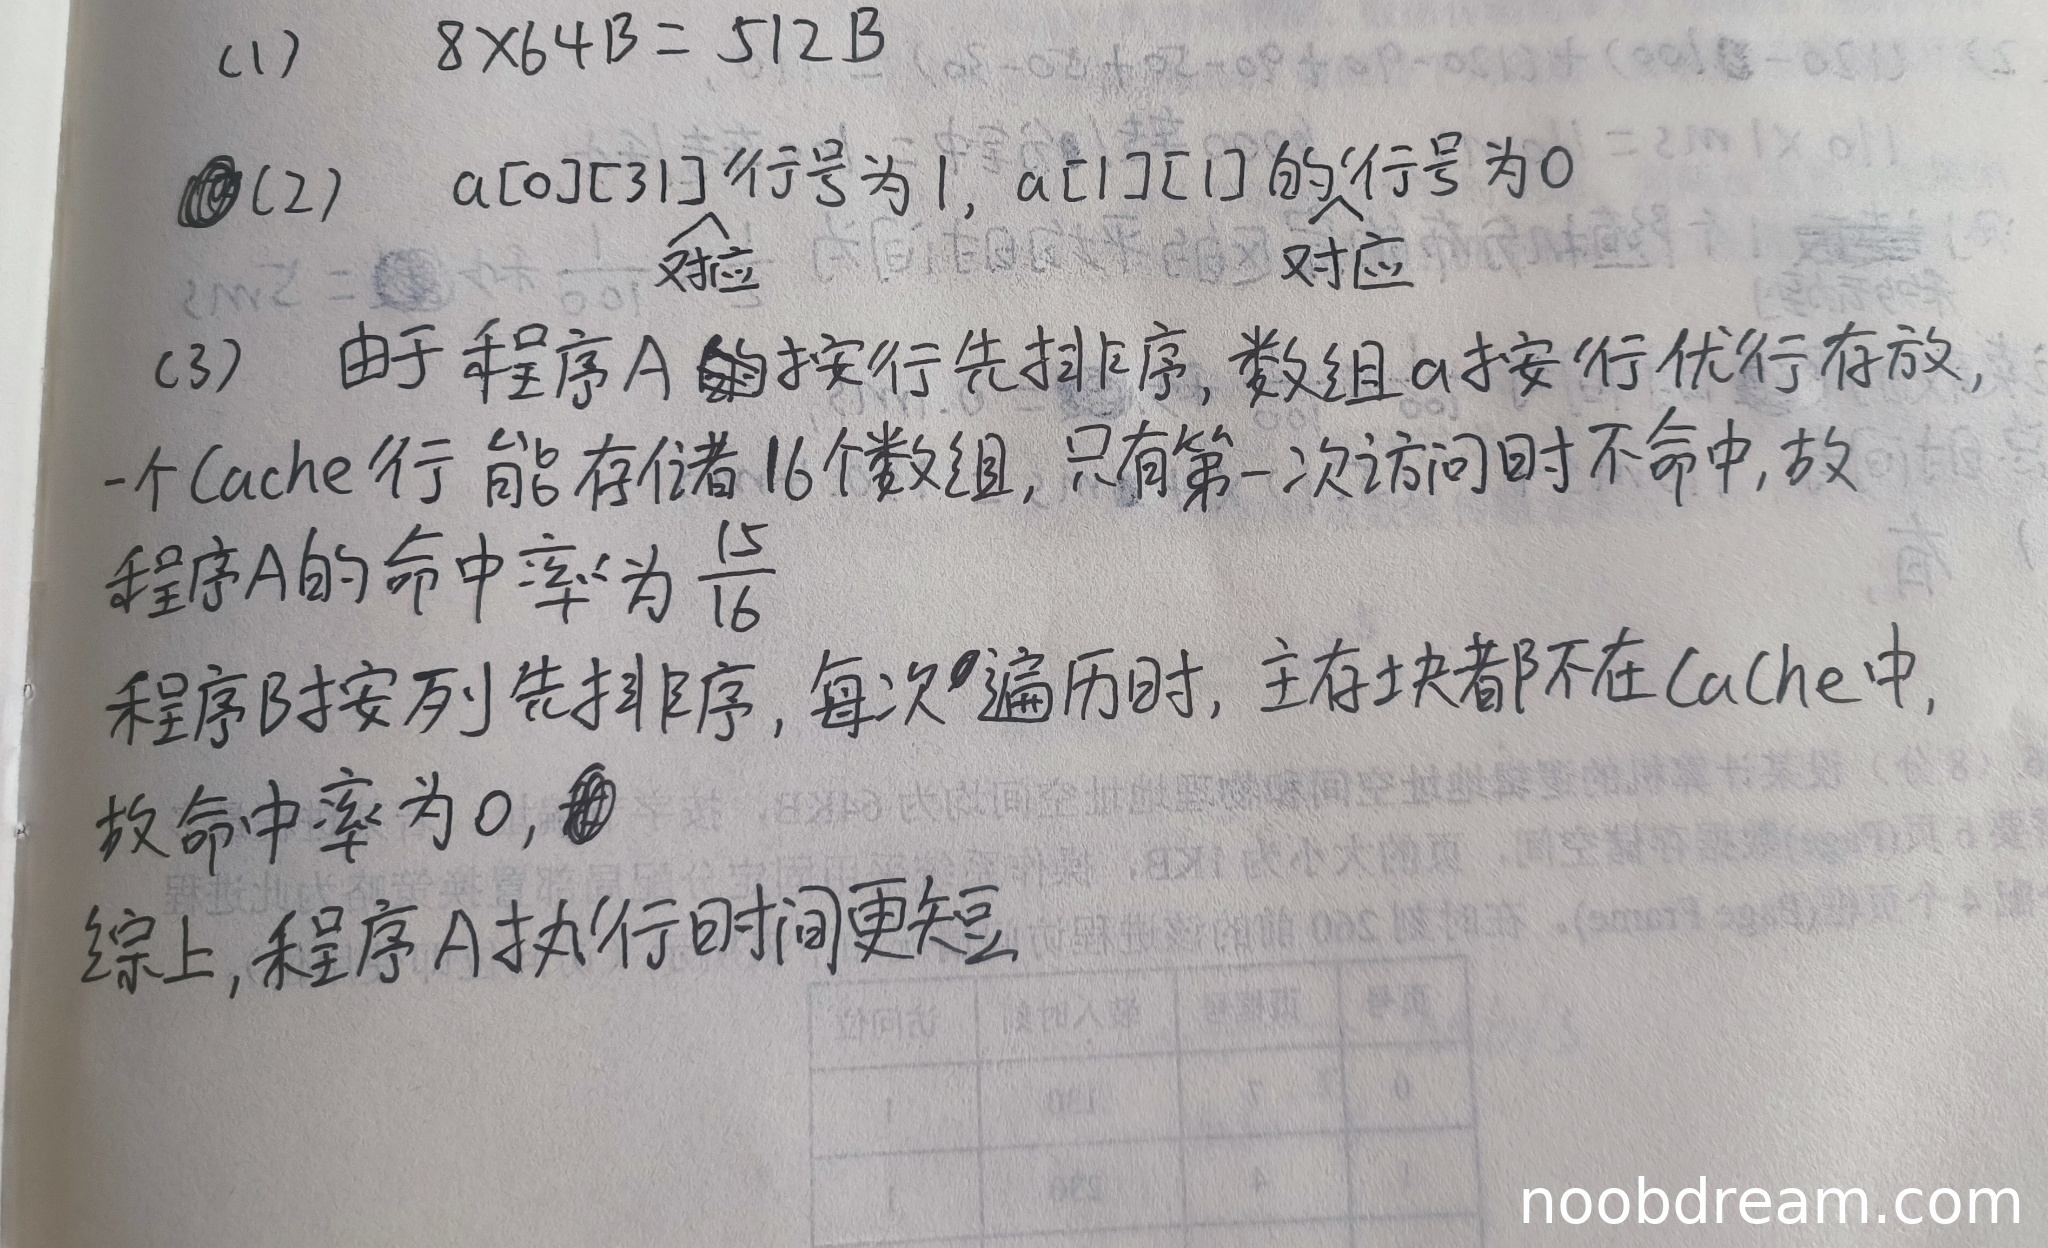 (1) 8×64B = 512B
(2) a[0][31]对应行号为1, a[1][1]对应的行号为0
(3) 由于程序A按行先排序, 数组a按行优行存放,
一个Cache行能存储者16个数组, 只有第一次访问时不命中, 故
程序A的命中率为 15/16
程序B按列先排序, 每次遍历时, 主存块都不在Cache中,
故命中率为0,
综上, 程序A执行时间更短
noobdream.com